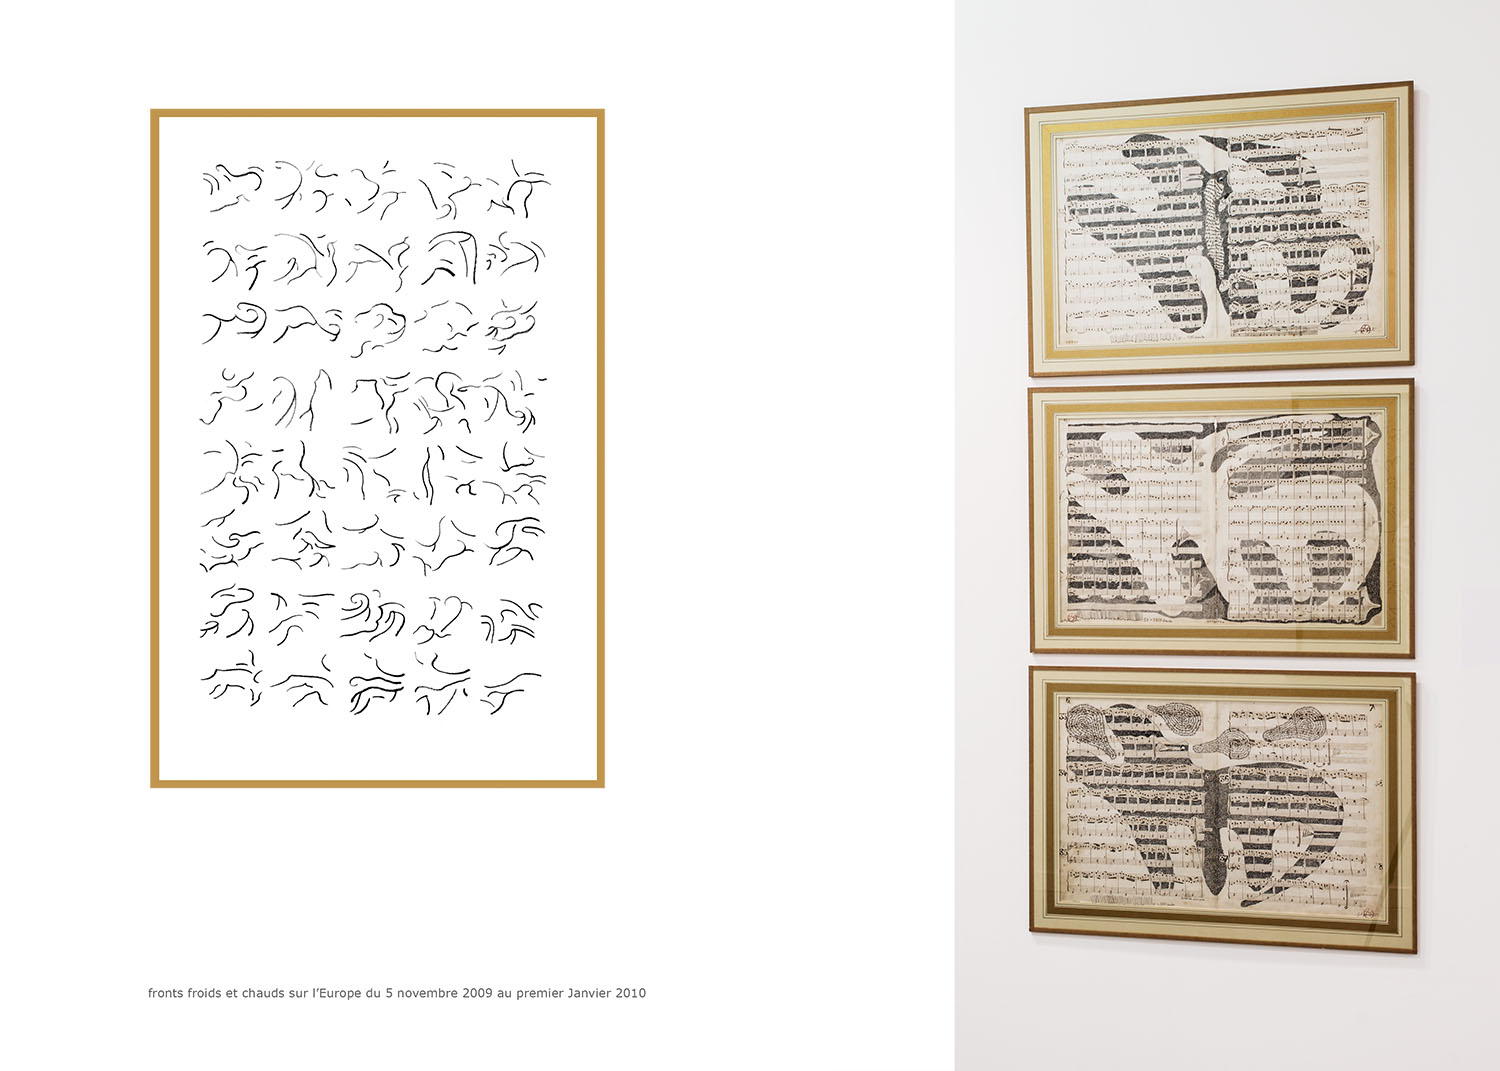 fronts froids et chauds sur l’Europe du 5 novembre 2009 au premier Janvier 2010